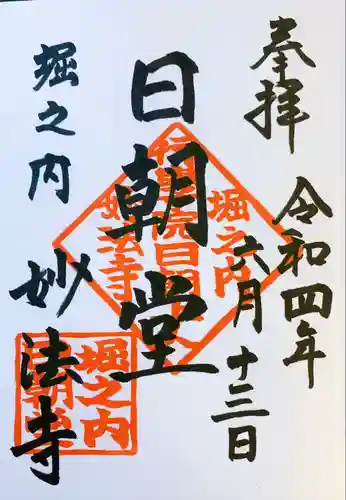 奉拝
令和四年
六月十三日
日朝堂
堀之内
妙法寺
堀之内
妙法寺
堀之内
日朝堂